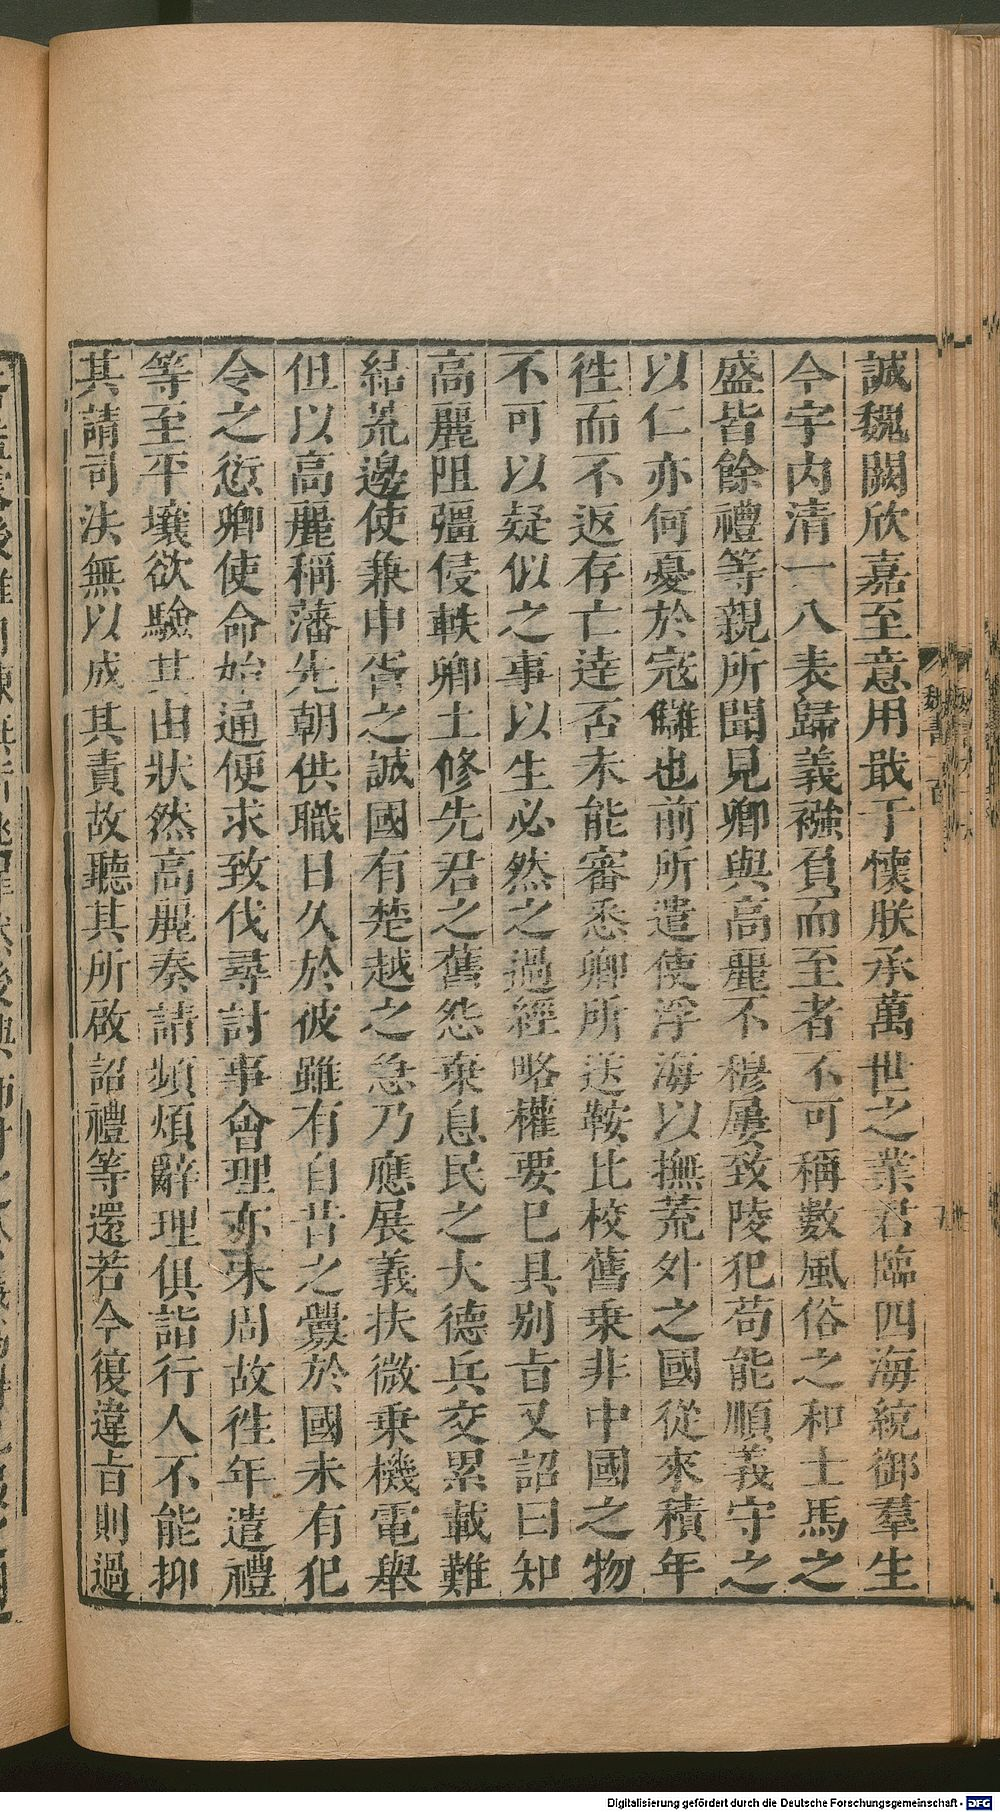 誠魏闕欣嘉至意用戢于懷朕承萬世之業君臨四海統御羣生
今宇内清一八表歸義襁負而至者不可稱數風俗之和士馬之
盛皆餘禮等親所聞見卿與高麗不穆屢致陵犯苟能順義守之
以仁亦何憂於寇讎也前所遣使浮海以撫荒外之國從來積年
徃而不返存亡逹否未能審悉卿所送鞍比校舊乗非中國之物
不可以疑似之事以生必然之過經略權要已具別旨又詔曰知
高麗阻彊侵軼卿土修先君之舊怨棄息民之大德兵交累載難
結荒邊使兼申胥之誠國有楚越之急乃應展義扶微乗機電舉
但以高麗稱藩先朝供職日久於彼雖有自昔之釁於國未有犯
令之愆卿使命始通便求致伐尋討事會理亦未周故徃年遣禮
等至平壤欲驗其由狀然高麗奏請頻煩辭理俱詣行人不能抑
其請司法無以成其責故聽其所啟詔禮等還若今復違旨則過
魏書一百
Digitalisierung gefördert durch die Deutsche Forschungsgemeinschaft - DFG